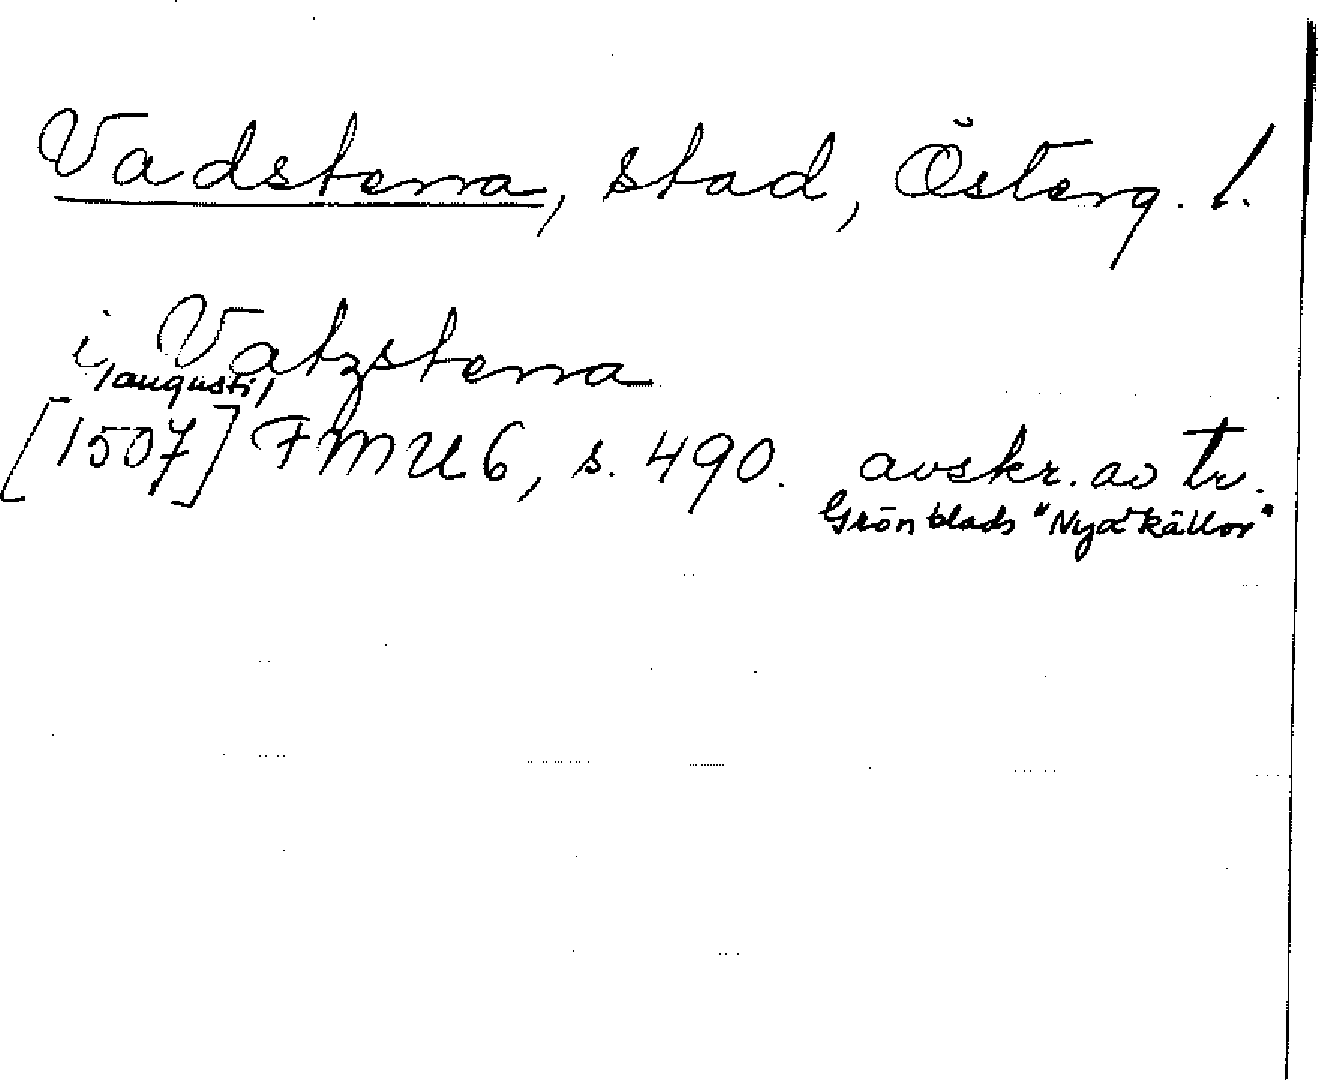 Vadstena, stad, Österg. l.
i Vatzstena
/augusti/
[1507] FMU 6, s. 490. avskr. av tr.
Grönblads "Nya källor"